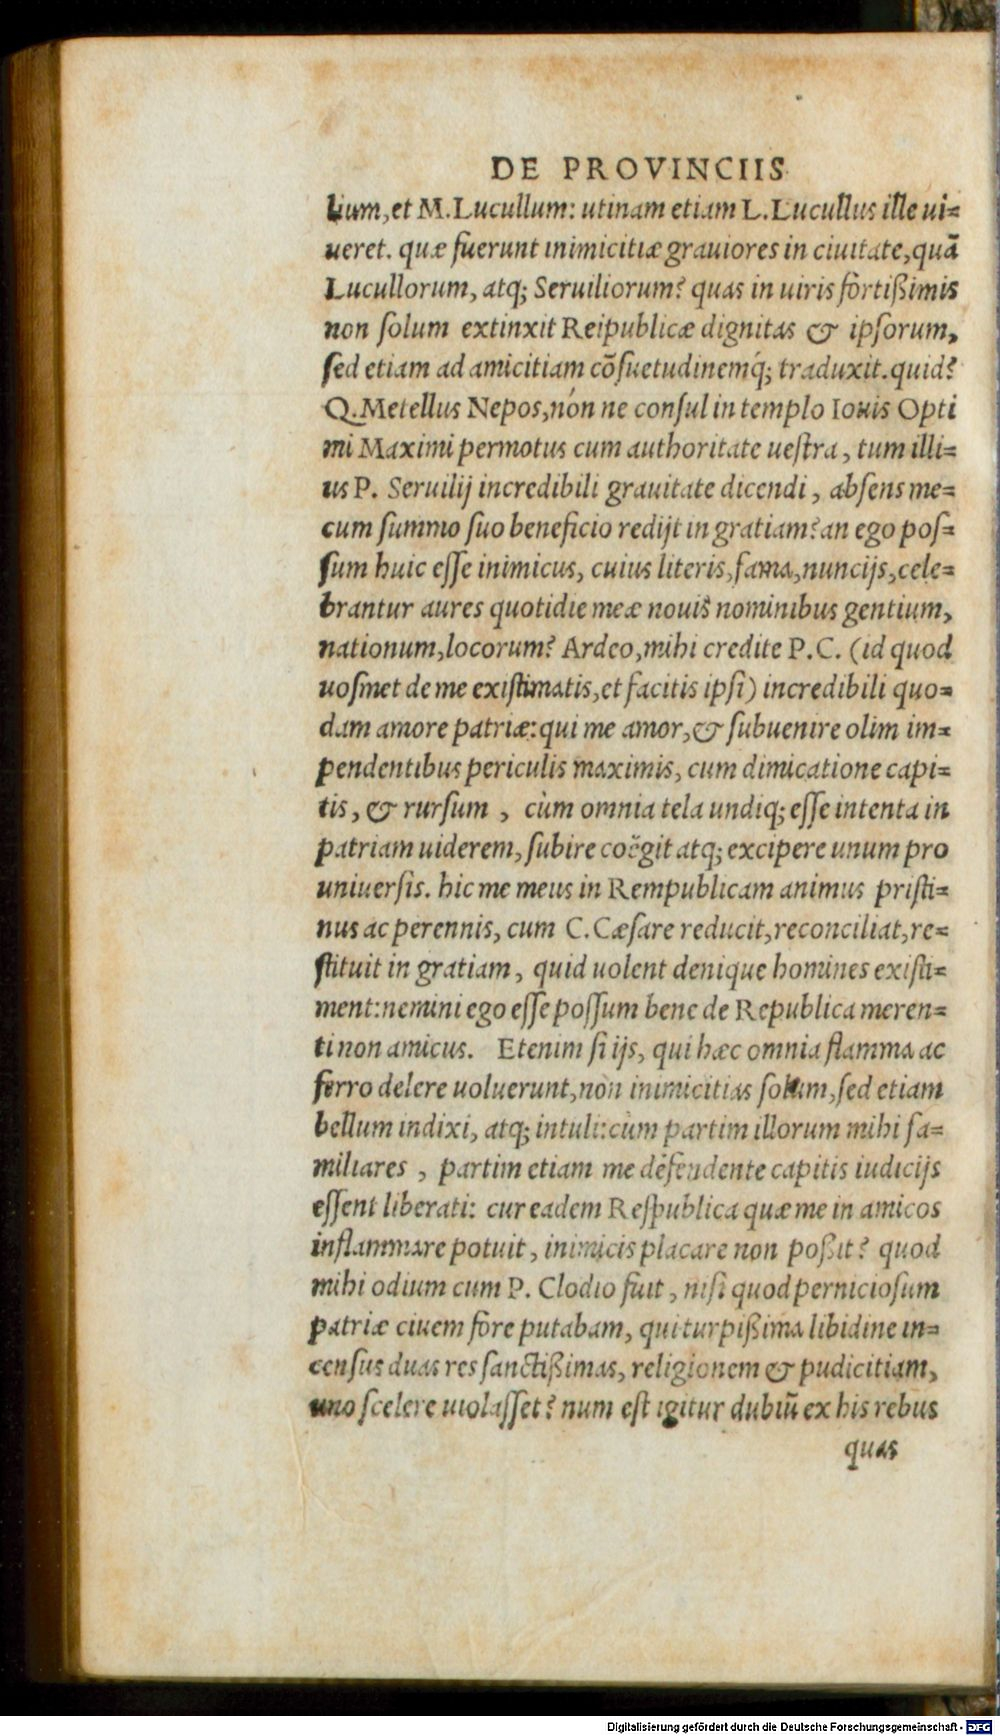 DE PROVINCIIS
lium, et M. Lucullum: utinam etiam L. Lucullus ille ui=
ueret. quæ fuerunt inimicitiæ grauiores in ciuitate, quã
Lucullorum, atq; Seruiliorum? quas in uiris fortißimis
non ſolum extinxit Reipublicæ dignitas & ipſorum,
ſed etiam ad amicitiam cõſuetudinemq́; traduxit. quid?
Q. Metellus Nepos, nón ne conſul in templo Iouis Opti
mi Maximi permotus cum authoritate ueſtra, tum illi=
us P. Seruilij incredibili grauitate dicendi, abſens me=
cum ſummo ſuo beneficio redijt in gratiam? an ego poſ=
ſum huic eſſe inimicus, cuius literis, fama, nuncijs, cele=
brantur aures quotidie meæ nouis nominibus gentium,
nationum, locorum? Ardeo, mihi credite P.C. (id quod
uoſmet de me exiſtimatis, et facitis ipſi) incredibili quo=
dam amore patriæ: qui me amor, & ſubuenire olim im=
pendentibus periculis maximis, cum dimicatione capi=
tis, & rurſum , cùm omnia tela undiq; eſſe intenta in
patriam uiderem, ſubire coëgit atq; excipere unum pro
uniuerſis. hic me meus in Rempublicam animus priſti=
nus ac perennis, cum C. Cæſare reducit, reconciliat, re=
ſtituit in gratiam, quid uolent denique homines exiſti=
ment: nemini ego eſſe poſſum bene de Republica meren=
ti non amicus. Etenim ſi ijs, qui hæc omnia flamma ac
ferro delere uoluerunt, non inimicitias ſolum, ſed etiam
bellum indixi, atq; intuli: cùm partim illorum mihi fa=
miliares , partim etiam me defendente capitis iudicijs
eſſent liberati: cur eadem Reſpublica quæ me in amicos
inflammare potuit, inimicis placare non poßit? quod
mihi odium cum P. Clodio fuit, niſi quod pernicioſum
patriæ ciuem fore putabam, qui turpißima libidine in=
cenſus duas res ſanctißimas, religionem & pudicitiam,
uno ſcelere uiolaſſet? num eſt igitur dubiũ ex his rebus
quas
Digitalisierung gefördert durch die Deutsche Forschungsgemeinschaft - DFG